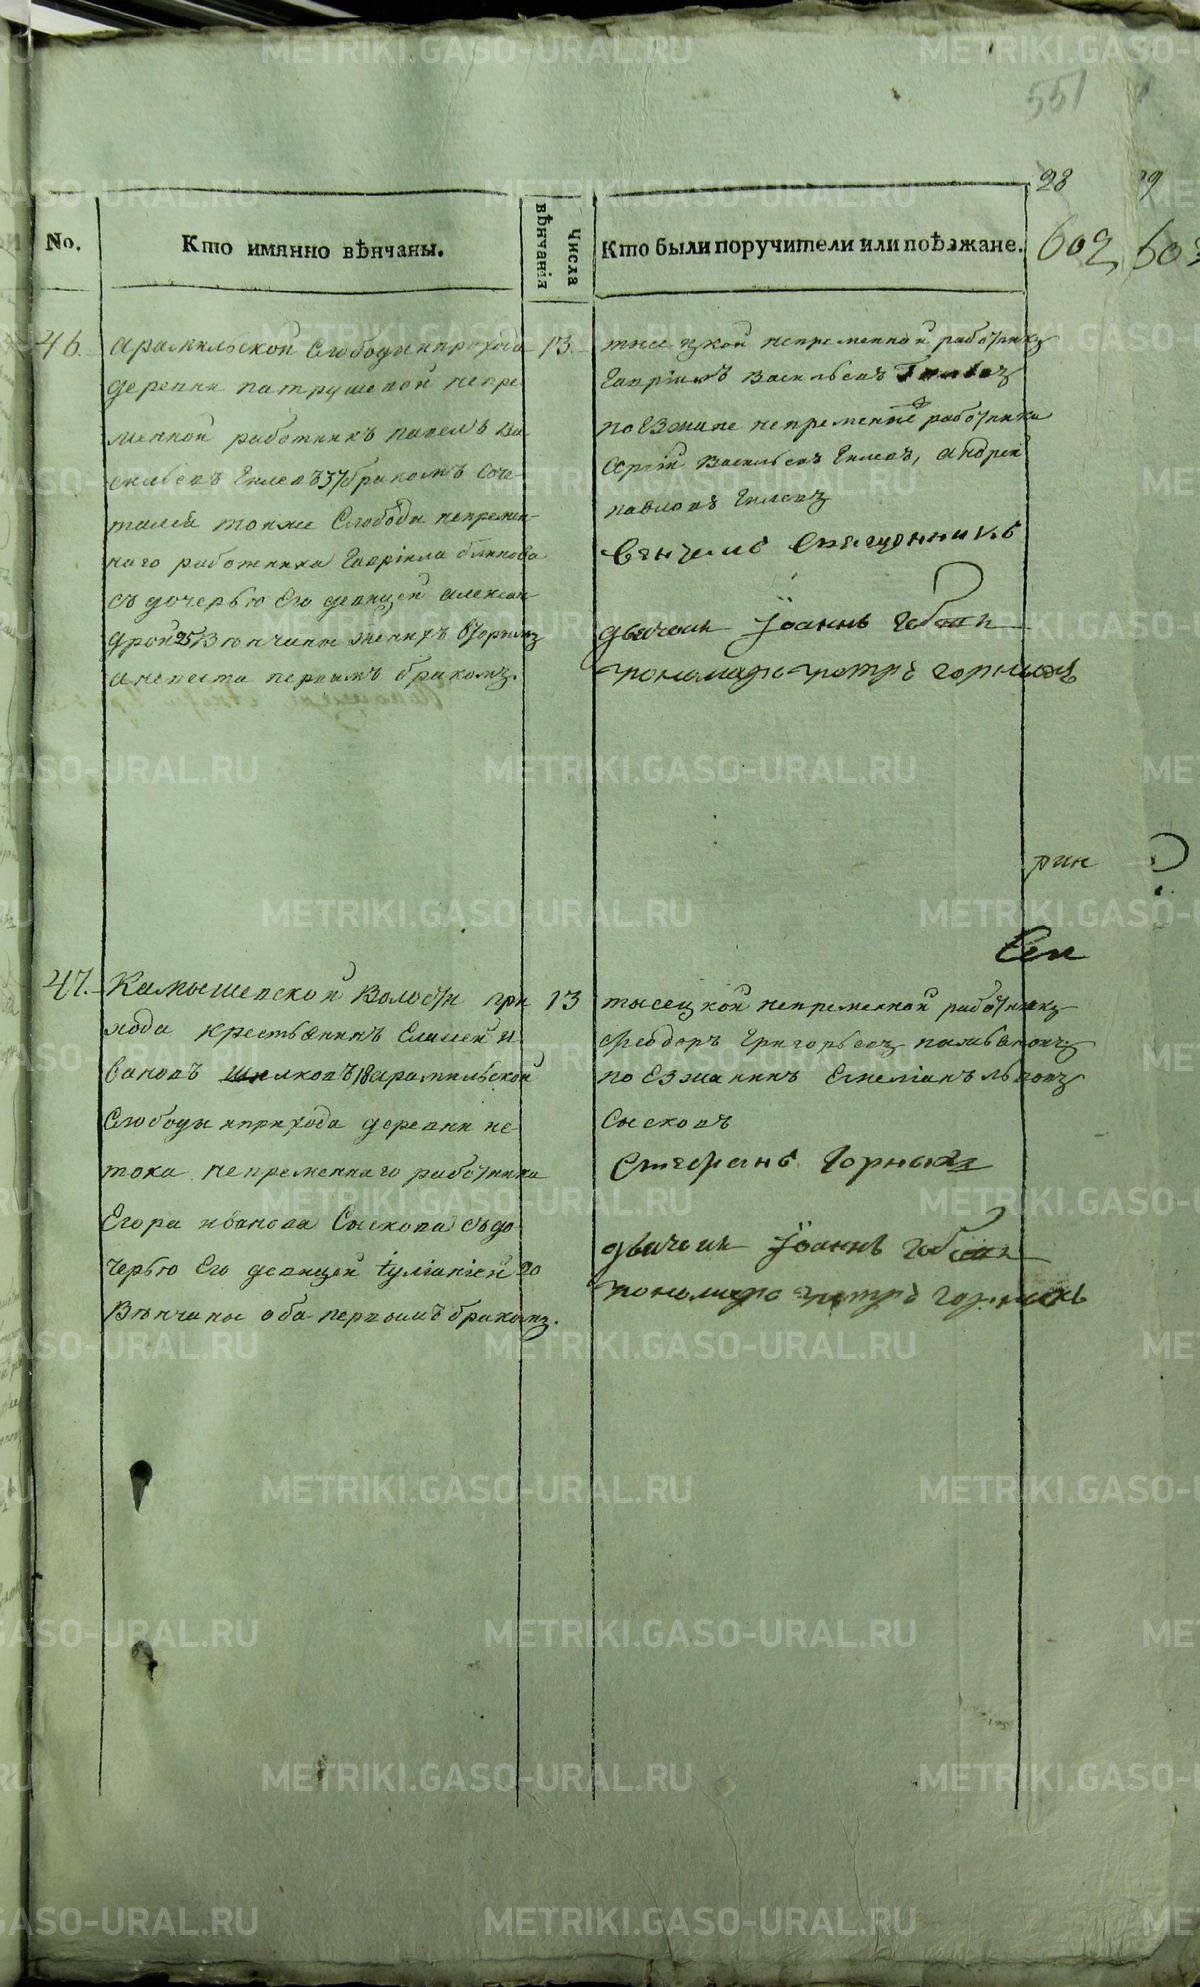 551
28
602
No.
Кто имянно вѣнчаны.
Числа вѣнчанія
Кто были поручители или поѣзжане.
46.
арамильской Слободы и прихода
деревни патрушевой непре
менной работникъ павелъ ва
сильевъ Гилевъ 37 бракомъ соче
тался тояже Слободы непремен
наго работника Гавріила блинова
съ дочерью Его девицей алексан
дрой 25 Венчаны жених вторымъ
а невеста первымъ бракомъ.
13.
тысяцкой непременной работникъ
Гавріилъ Васильевъ
поезжане непременные работники
Сергій Васильевъ Гилевъ, андрей
павловъ Гилевъ
Венчалъ Священникъ
дьячокъ Іоаннъ
пономарь петръ горныхъ
рин
47.
Камышевской Волости при
хода крестьянинъ Елисей и
вановъ 18 арамильской
Слободы и прихода деревни ис
тока непременнаго работника
Егора иванова Сыскова съ до
черью Его девицей іуліаніей 20
Венчаны оба первымъ бракомъ.
13
тысецкой непременной работникъ
феодоръ Григорьевъ
поезжанинъ Емеліанъ львовъ
Сысковъ
Стефанъ Горныхъ
дьячокъ Іоаннъ
пономарь петръ горныхъ
METRIKI.GASO-URAL.RU